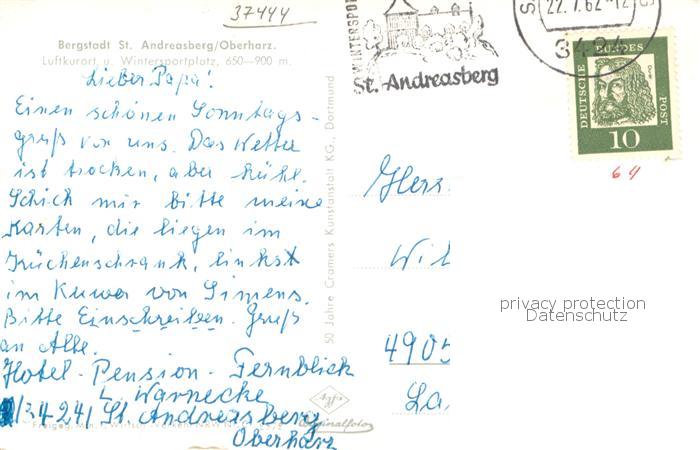 37444
Bergstadt St. Andreasberg/Oberharz.
Luftkurort u. Wintersportplatz, 650—900 m.
Lieber Papa!
Einen schönen Sonntags-
gruß von uns. Das Wetter
ist trocken, aber kühl.
Schick mir bitte meine
Karten, die liegen im
Küchenschrank, links
im Kuwer von Simens.
Bitte Einschreiben. Gruß
an Alle.
Hotel-Pension-Fernblick
L. Warnecke
3424 St. Andreasberg
Oberharz
50 Jahre Cramers Kunstanstalt KG., Dortmund
Originalfoto
WINTERSPORT
St. Andreasberg
22.7.62-12
3424
DEUTSCHE
BUNDES
POST
Dürer
10
64
Herr
Wil
4905
La
privacy protection
Datenschutz